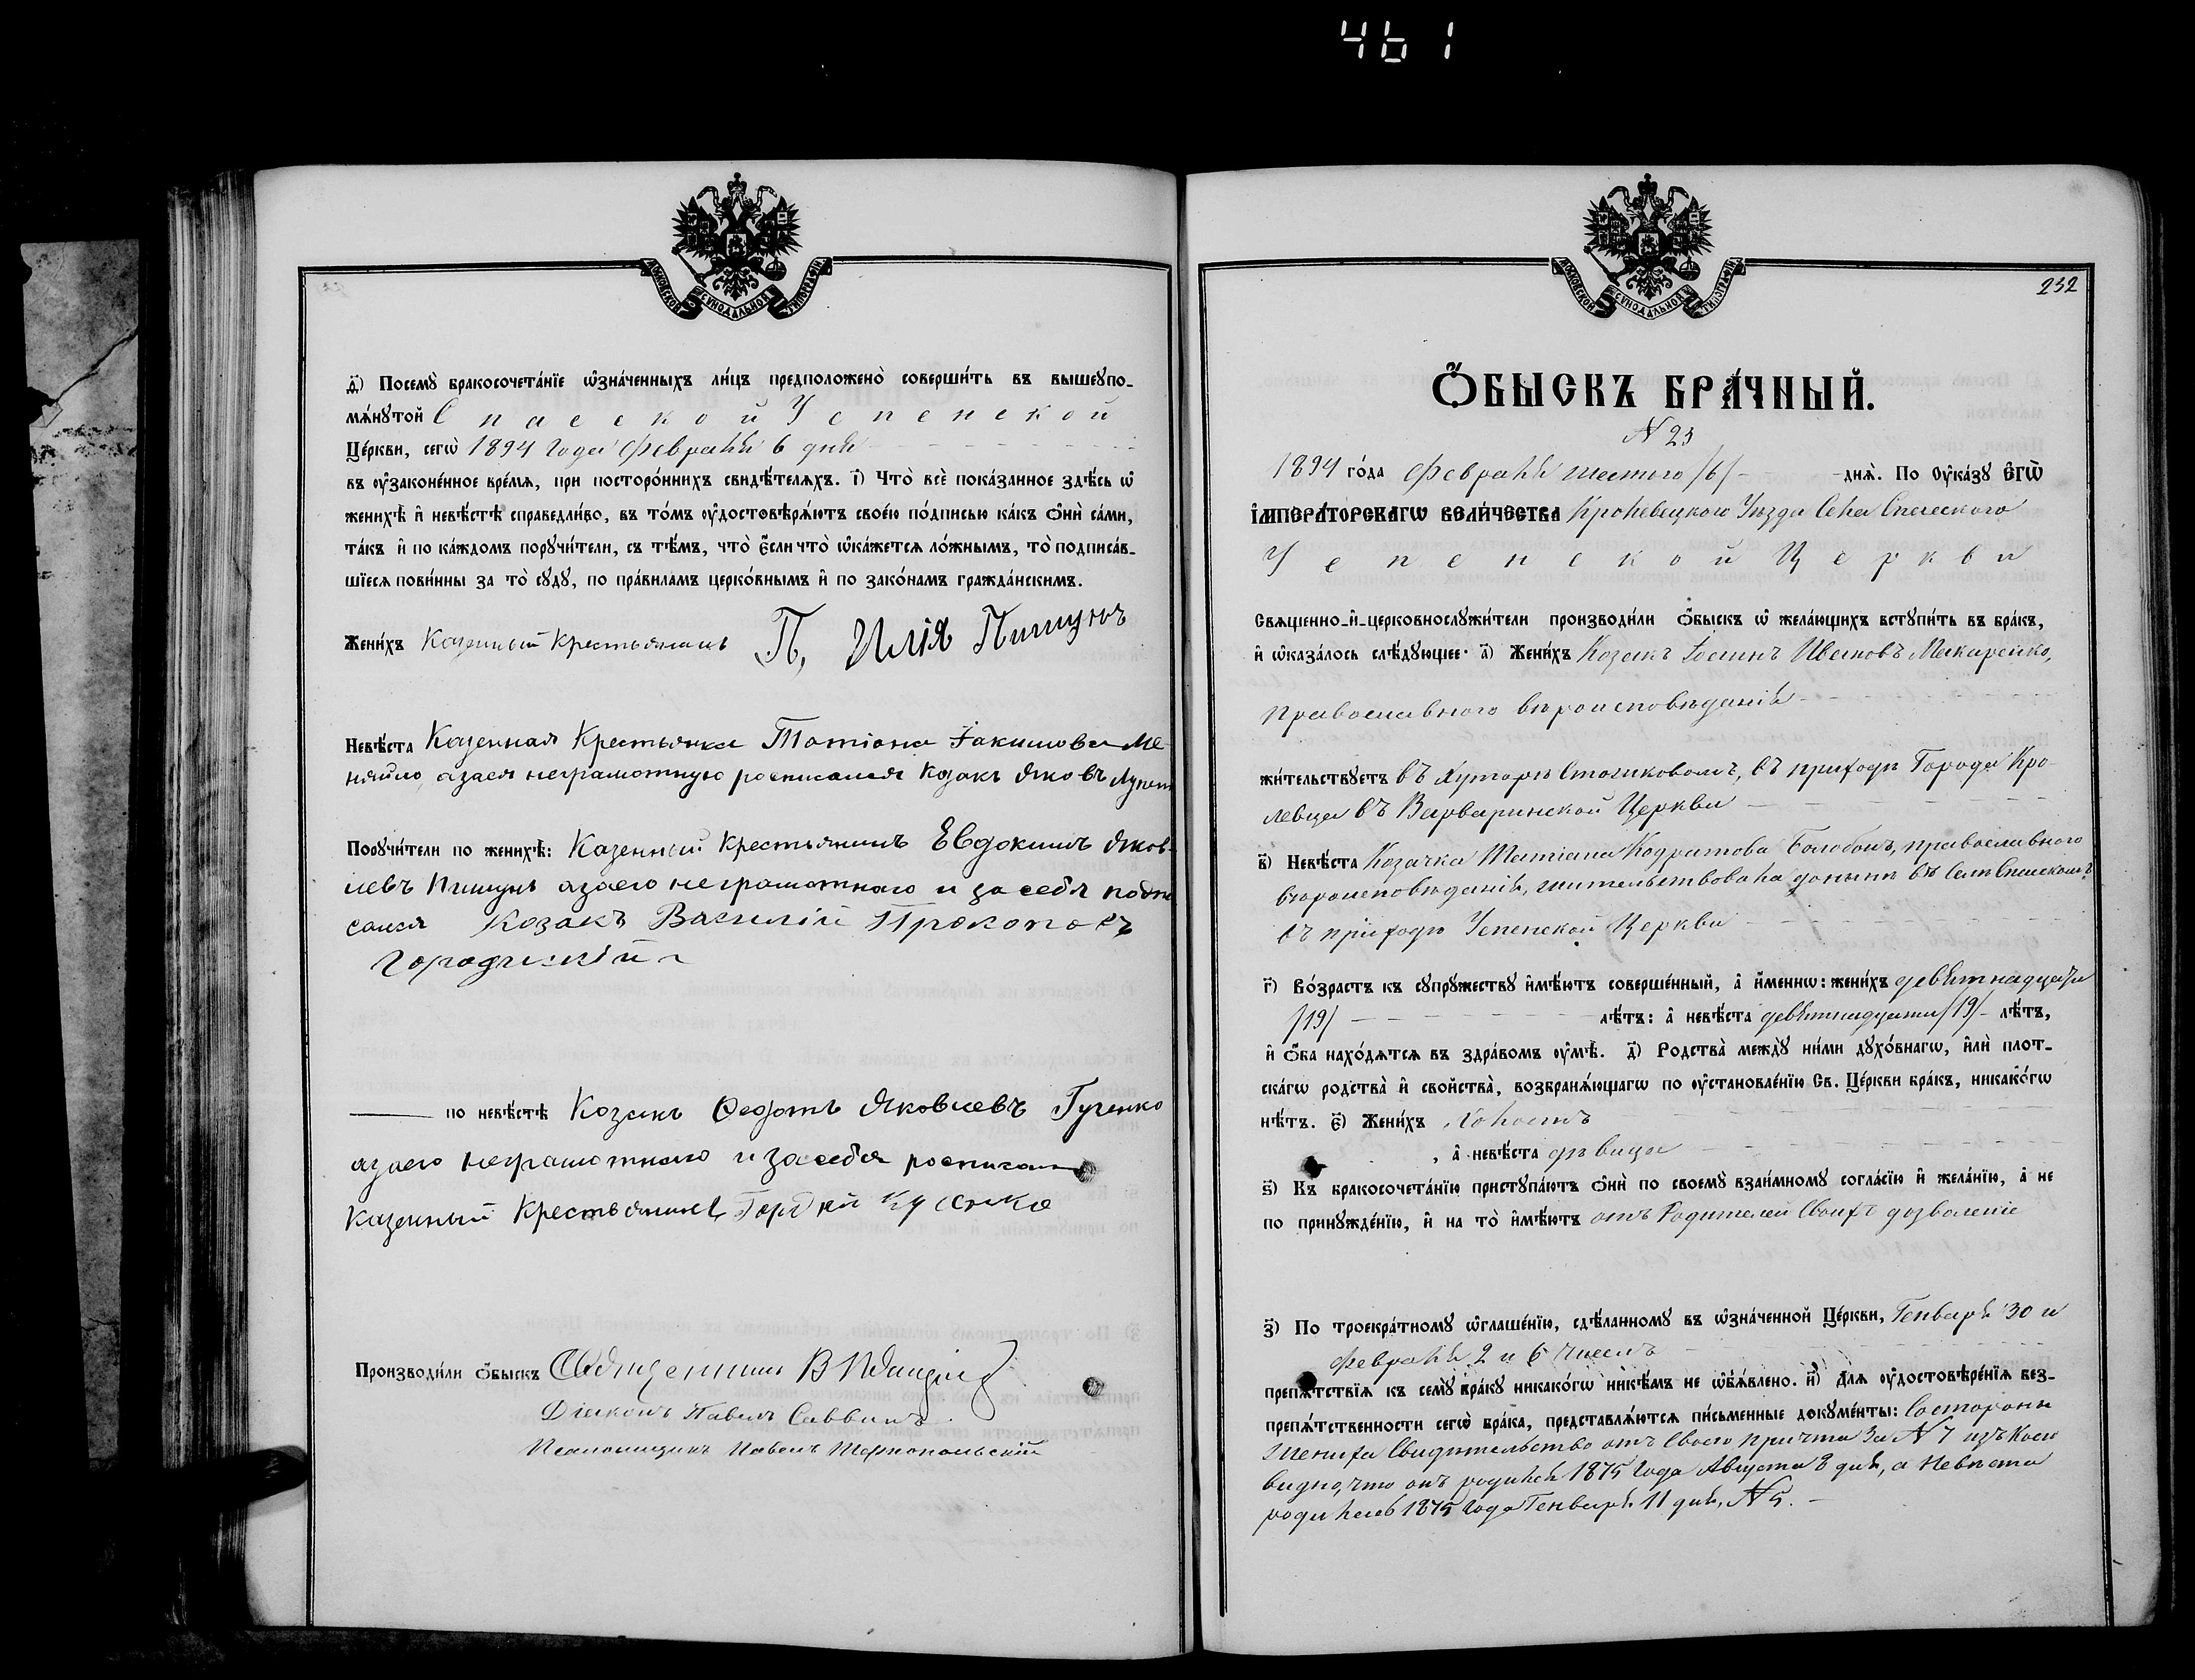 461
МОСКОВСКОЙ СѴНОДАЛЬНОЙ ТИПОГРАФІИ
д҃і) Посемꙋ̀ бракосочета́нїе ѡ҆зна́ченныхъ ли́цъ предположено̀ соверши́ть въ вышеꙋпо-
мѧ́нꙋтой Спасской Успенской
Це́ркви, сегѡ̀ 1894 года Февраля 6 дня
въ ᲂу҆законе́нное вре́мѧ, при посторо́ннихъ свидѣ́телѧхъ. і҃) Что̀ всѐ пока́занное здѣ́сь ѡ҆
женихѣ̀ и҆ невѣ́стѣ справедли́во, въ то́мъ ᲂу҆достовѣрѧ́ютъ свое́ю по́дписью ка́къ ѻ҆нѝ са́ми,
та́къ и҆ по ка́ждомъ порꙋчи́тели, съ тѣ́мъ, что̀ є҆́сли что̀ ѡ҆ка́жетсѧ ло́жнымъ, то̀ подписа́в-
шїесѧ пови́нны за то̀ сꙋдꙋ̀, по пра́виламъ церко́внымъ и҆ по зако́намъ гражда́нскимъ.
Жени́хъ Казенный Крестьянинъ П. Илія Пишунъ
Невѣ́ста Казенная Крестьянка Татіана Іакимова Ме-
няйло, азаея неграмотную росписался Козакъ Яковъ
Порꙋчи́тели по женихѣ̀: Казенный Крестьянинъ Евдокимъ Яков-
левъ Пишунъ азаего неграмотнаго и за себя подпи
сался Козакъ Василій Прокоповъ
Городискій
по невѣ́стѣ Козакъ Ѳедотъ Яковлевъ Гученко
азаего неграмотнаго и засебя росписался
Казенный Крестьянинъ Гордѣй
Производи́ли ѻ҆́быскъ Священникъ
Діаконъ Павелъ Саввинъ
Псаломщикъ Павелъ Тернопольскій
МОСКОВСКОЙ СѴНОДАЛЬНОЙ ТИПОГРАФІИ
232
Ѻ҆́БЫСКЪ БРА́ЧНЫЙ.
N 23
1894 го́да Февраля шестого /6/ днѧ̀. По Оу҆ка́зꙋ Є҆ГѠ̀
І҆МПЕРА́ТОРСКАГѠ ВЕЛИ́ЧЕСТВА Кролевецкого Уѣзда Села Спасского
Успенской Церкви
Свѧщенно-и҆-церковнослꙋжи́тели производи́ли ѻ҆́быскъ ѡ҆ жела́ющихъ встꙋпи́ть въ бра́къ,
и҆ ѡ҆каза́лось слѣ́дꙋющее. а҃) Жени́хъ Козакъ Іоаннъ Ивановъ Макаренко,
православного вѣроисповѣданія
жи́тельствꙋетъ въ Хуторѣ Стогиковомъ, въ приходѣ Города Кро-
левца въ Варваринской Церкви
в҃) Невѣ́ста Козачка Татіана Кодратова Болобонъ, православного
вѣроисповѣданія, жительствовала донынѣ въ Селѣ Спасскомъ
въ приходѣ Успенской Церкви
г҃) Во́зрастъ къ сꙋпрꙋ́жествꙋ и҆мѣ́ютъ соверше́нный, а҆ и҆́менно: жени́хъ девятнадцати
/19/ лѣ́тъ: а҆ невѣ́ста девятнадцати /19/ лѣ́тъ,
и҆ ѻ҆́ба нахо́дѧтсѧ въ здра́вомъ ᲂу҆мѣ̀. д҃) Родства̀ междꙋ̀ ни́ми дꙋхо́внагѡ, и҆лѝ плот-
ска́гѡ родства̀ и҆ свойства̀, возбранѧ́ющагѡ по ᲂу҆становле́нїю Св. Це́ркви бра́къ, никако́гѡ
нѣ́тъ. є҃) Жени́хъ холостъ
, а҆ невѣ́ста дѣвица
ѕ҃) Къ бракосочета́нїю приступа́ютъ ѻ҆нѝ по своемꙋ̀ взаи́мномꙋ согла́сїю и҆ жела́нїю, а҆ не
по принꙋжде́нїю, и҆ на то̀ и҆мѣ́ютъ отъ Родителей Своихъ дозволеніе
з҃) По троекра́тномꙋ ѡ҆глаше́нїю, сдѣ́ланномꙋ въ ѡ҆зна́ченной Це́ркви, Генваря 30 и
Февраля 2 и 6 чиселъ
препѧ́тствїѧ къ семꙋ̀ бра́кꙋ никако́гѡ никѣ́мъ не ѡ҆бъѧ́влено. и҃) Длѧ ᲂу҆достовѣре́нїѧ без-
препѧ́тственности сегѡ̀ бра́ка, представлѧ́ютсѧ пи́сьменные докꙋме́нты: Состороны
Жениха Свидѣтельство отъ Своего причта За N 7 изъ Коего
видно, что онъ родился 1875 года Августа 8 дня, а Невѣста
родилась 1875 года Генваря 11 дня, N 5.